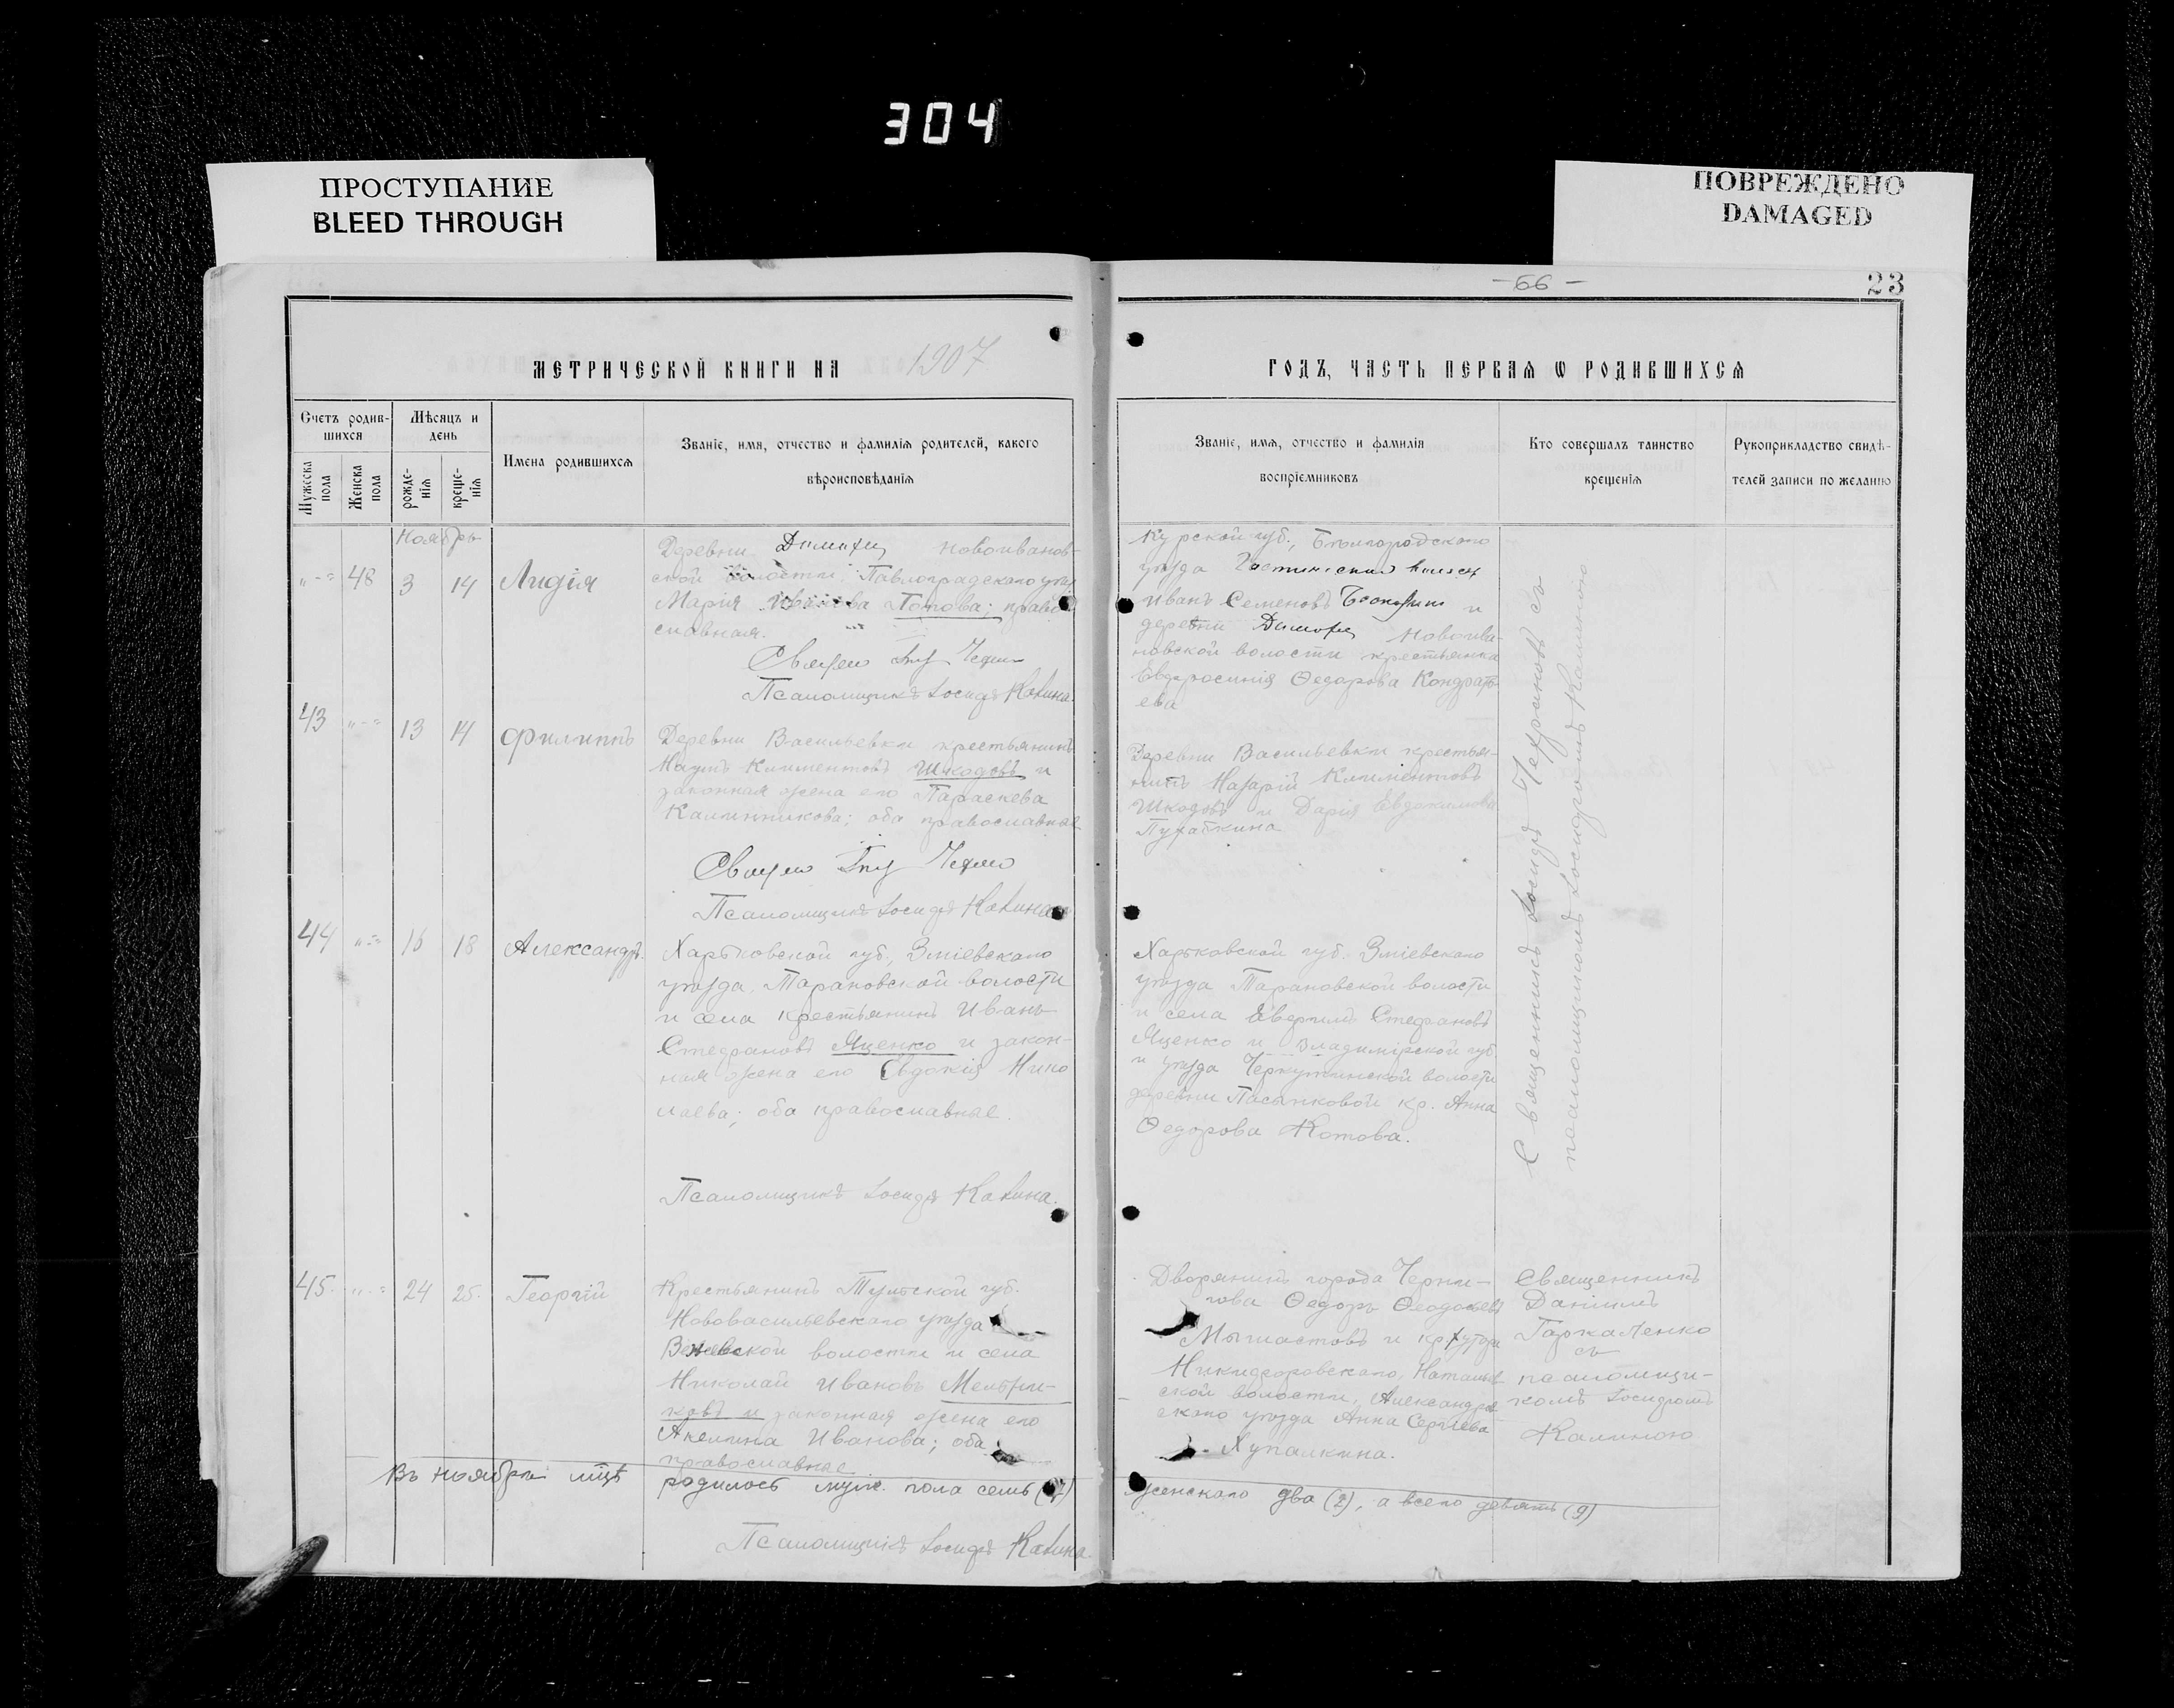 304
ПРОСТУПАНИЕ
BLEED THROUGH
ПОВРЕЖДЕНО
DAMAGED
- 66 -
23
МЕТРИЧЕСКОЙ КНИГИ НА 1907
ГОДЪ, ЧАСТЬ ПЕРВАЯ Ѡ РОДИВШИХСЯ
Счетъ родив-
шихся
Мужеска пола
Женска пола
Мѣсяцъ и
день
рожде-
нія
креще-
нія
Имена родившихся
Званіе, имя, отчество и фамилія родителей, какого
вѣроисповѣданія
Званіе, имя, отчество и фамилія
воспріемниковъ
Кто совершалъ таинство
крещенія
Рукоприкладство свидѣ-
телей записи по желанію
Ноябрь
48 3 14 Лидія
Деревни новоиванов-
ской волости, Павлоградскаго
Марія Попова; право
славная.
Псаломщикъ Іосифъ Калина.
Курской губ., Бѣлгородскаго
уѣзда
Иванъ Семеновъ и
деревни новоива-
новской волости крестьянка
Евфросинія Ѳедорова Кондрать-
ева
43 13 14 Филиппъ
Деревни Васильевки крестьянинъ
Наумъ Климентовъ Шкодовъ и
законная жена его Параскева
Калинникова; оба православные
Псаломщикъ Іосифъ Калина
Деревни Васильевки крестья-
нинъ Назарій Климентовъ
Шкодовъ и Дарія Евдокимова
44 16 18 Александръ.
Харьковской губ., Зміевскаго
уѣзда, Тарановской волости
и села крестьянинъ Иванъ
Стефановъ Яценко и закон-
ная жена его Евдокія Нико
лаева; оба православные.
Псаломщикъ Іосифъ Калина.
Харьковской губ. Зміевскаго
уѣзда Тарановской волости
и села Стефановъ
Яценко и Владимірской губ.
и уѣзда Черкутинской волости
деревни Пасынковой кр. Анна
Ѳедорова Котова.
Священникъ Іосифъ съ
псаломщикомъ Іосифомъ Калиною
45. 24 25. Георгій
Крестьянинъ Тульской губ.
Нововасильевскаго уѣзда
волости и села
Николай Ивановъ
ковъ и законная жена его
Акелина Иванова; оба
православные.
Дворянинъ города Черни-
гова Ѳедоръ
и
Никифоровскаго,
ской волости, Александров
скаго уѣзда Анна Сергѣева
Хупалкина.
Священникъ
Даніилъ
Гаркаленко
съ
псаломщи-
комъ Іосифомъ
Калиною
Въ ноябрѣ мцѣ родилось муж. пола семь (7)
женскаго два (2), а всего девять (9)
Псаломщикъ Іосифъ Калина